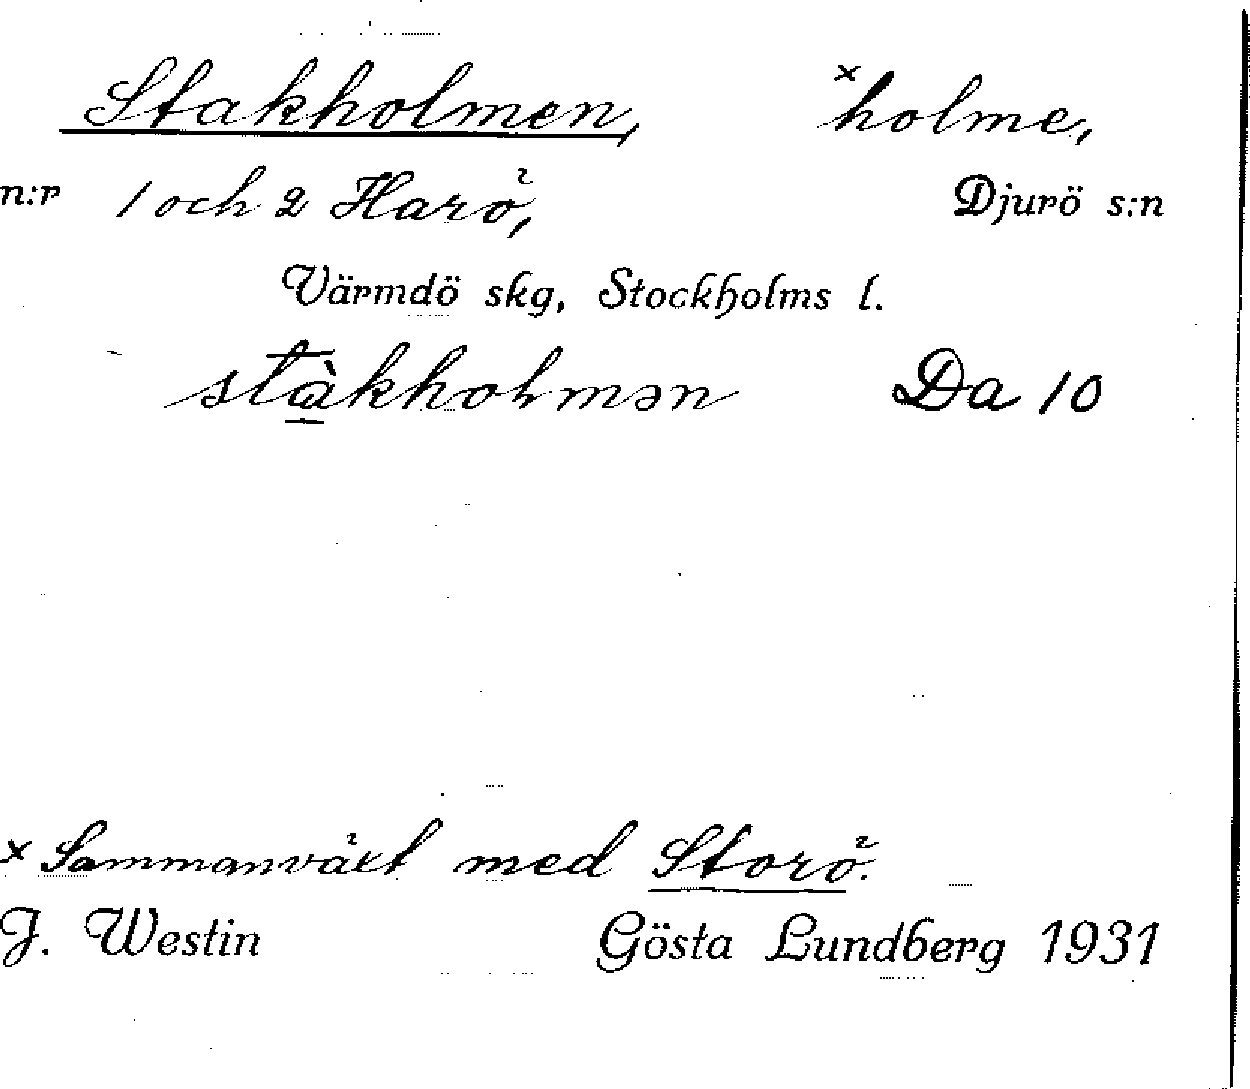 Stakholmen, ×holme,
n:r 1 och 2 Harö, Djurö s:n
Värmdö skg, Stockholms l.
stàkholmən Da 10
× Sammanväxt med Storö.
J. Westin Gösta Lundberg 1931